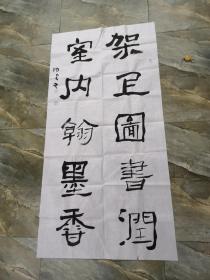 架上圖書潤
室内翰墨香